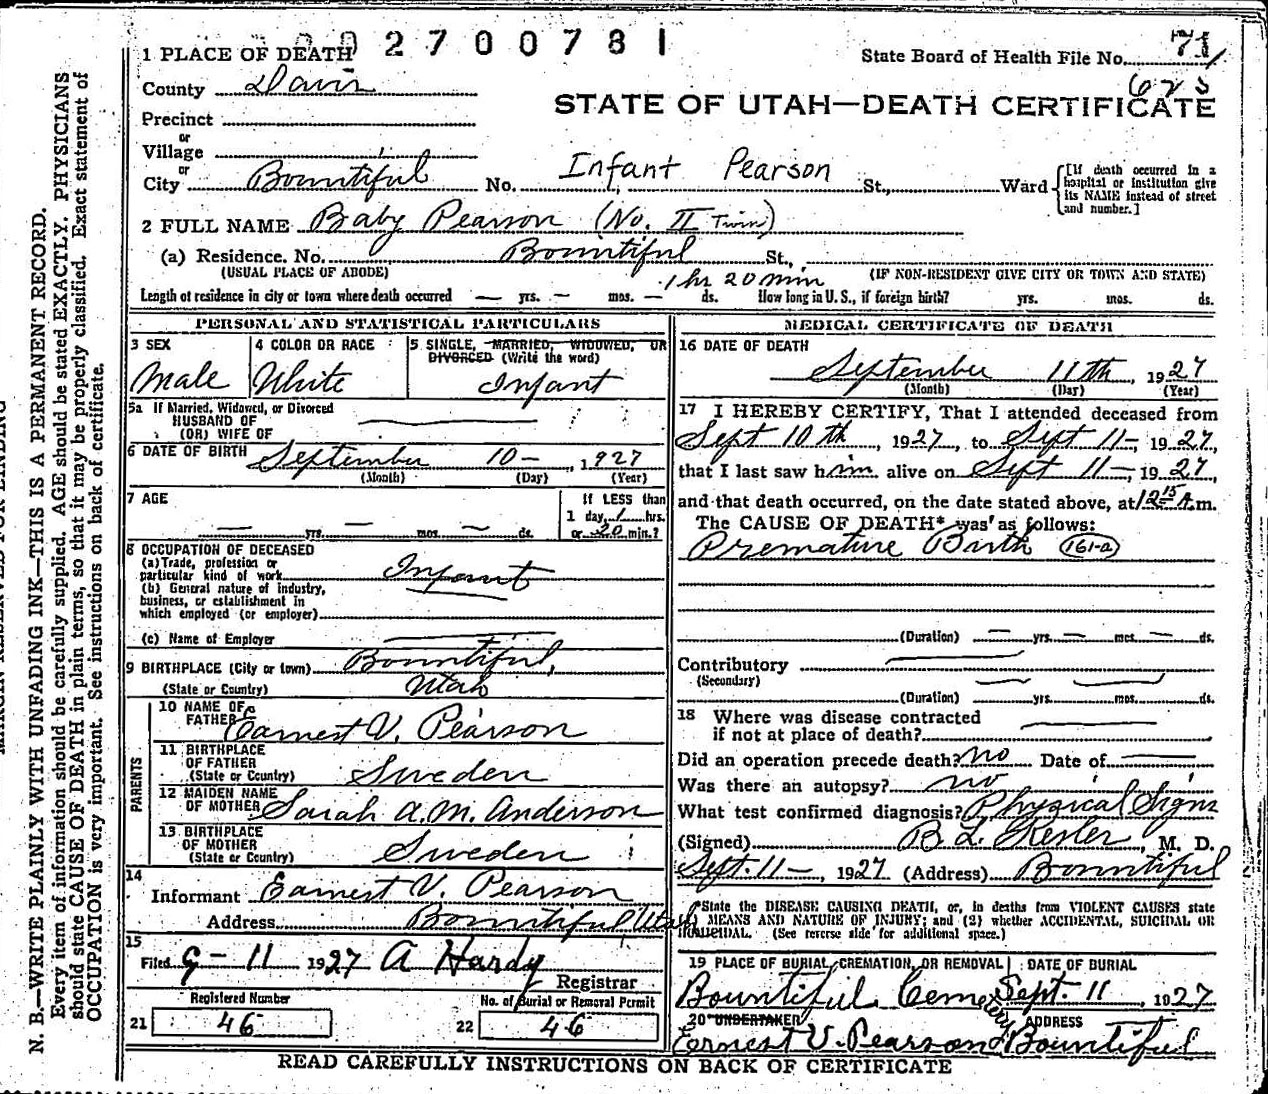 2700781
1 PLACE OF DEATH
State Board of Health File No. 71
County Davis
625
STATE OF UTAH—DEATH CERTIFICATE
Precinct
or
Village
or
City Bountiful No. Infant Pearson St., Ward
[If death occurred in a hospital or institution give its NAME instead of street and number.]
2 FULL NAME Baby Pearson (No. II Twin)
(a) Residence. No. Bountiful St.,
(USUAL PLACE OF ABODE) (IF NON-RESIDENT GIVE CITY OR TOWN AND STATE)
1 hr 20 min
Length of residence in city or town where death occurred — yrs. — mos. — ds. How long in U. S., if foreign birth? yrs. mos. ds.
PERSONAL AND STATISTICAL PARTICULARS
3 SEX 4 COLOR OR RACE 5 SINGLE, MARRIED, WIDOWED, OR
DIVORCED (Write the word)
Male White Infant
5a If Married, Widowed, or Divorced
HUSBAND OF
(OR) WIFE OF
6 DATE OF BIRTH September 10 – , 1927
(Month) (Day) (Year)
7 AGE If LESS than
1 day, 1 hrs.
— yrs. — mos. — ds. or 20 min.?
8 OCCUPATION OF DECEASED
(a) Trade, profession or
particular kind of work Infant
(b) General nature of industry,
business, or establishment in
which employed (or employer)
(c) Name of Employer
9 BIRTHPLACE (City or town) Bountiful,
(State or Country) Utah
PARENTS
10 NAME OF
FATHER Earnest V. Pearson
11 BIRTHPLACE
OF FATHER
(State or Country) Sweden
12 MAIDEN NAME
OF MOTHER Sarah A. M. Anderson
13 BIRTHPLACE
OF MOTHER
(State or Country) Sweden
14
Informant Earnest V. Pearson
Address Bountiful Utah
15
Filed 9-11 1927 A Hardy
Registrar
Registered Number No. of Burial or Removal Permit
21 46 22 46
MEDICAL CERTIFICATE OF DEATH
16 DATE OF DEATH
September 11th, 1927
(Month) (Day) (Year)
17 I HEREBY CERTIFY, That I attended deceased from
Sept 10th, 1927, to Sept 11–, 1927,
that I last saw him alive on Sept 11–, 1927,
and that death occurred, on the date stated above, at 12 15 A.m.
The CAUSE OF DEATH* was as follows:
Premature Birth (161-a)
(Duration) — yrs. — mos. — ds.
Contributory
(Secondary)
(Duration) yrs. mos. ds.
18 Where was disease contracted
if not at place of death?
Did an operation precede death? no Date of
Was there an autopsy? no
What test confirmed diagnosis? Physical Signs
(Signed) B. L. Kesler, M. D.
Sept. 11 –, 1927 (Address) Bountiful
*State the DISEASE CAUSING DEATH, or, in deaths from VIOLENT CAUSES state
(1) MEANS AND NATURE OF INJURY; and (2) whether ACCIDENTAL, SUICIDAL OR
HOMICIDAL. (See reverse side for additional space.)
19 PLACE OF BURIAL, CREMATION, OR REMOVAL DATE OF BURIAL
Bountiful Cemetery Sept. 11, 1927
20 UNDERTAKER ADDRESS
Ernest V. Pearson Bountiful
READ CAREFULLY INSTRUCTIONS ON BACK OF CERTIFICATE
N. B.—WRITE PLAINLY WITH UNFADING INK—THIS IS A PERMANENT RECORD.
Every item of information should be carefully supplied. AGE should be stated EXACTLY. PHYSICIANS
should state CAUSE OF DEATH in plain terms, so that it may be properly classified. Exact statement of
OCCUPATION is very important. See instructions on back of certificate.